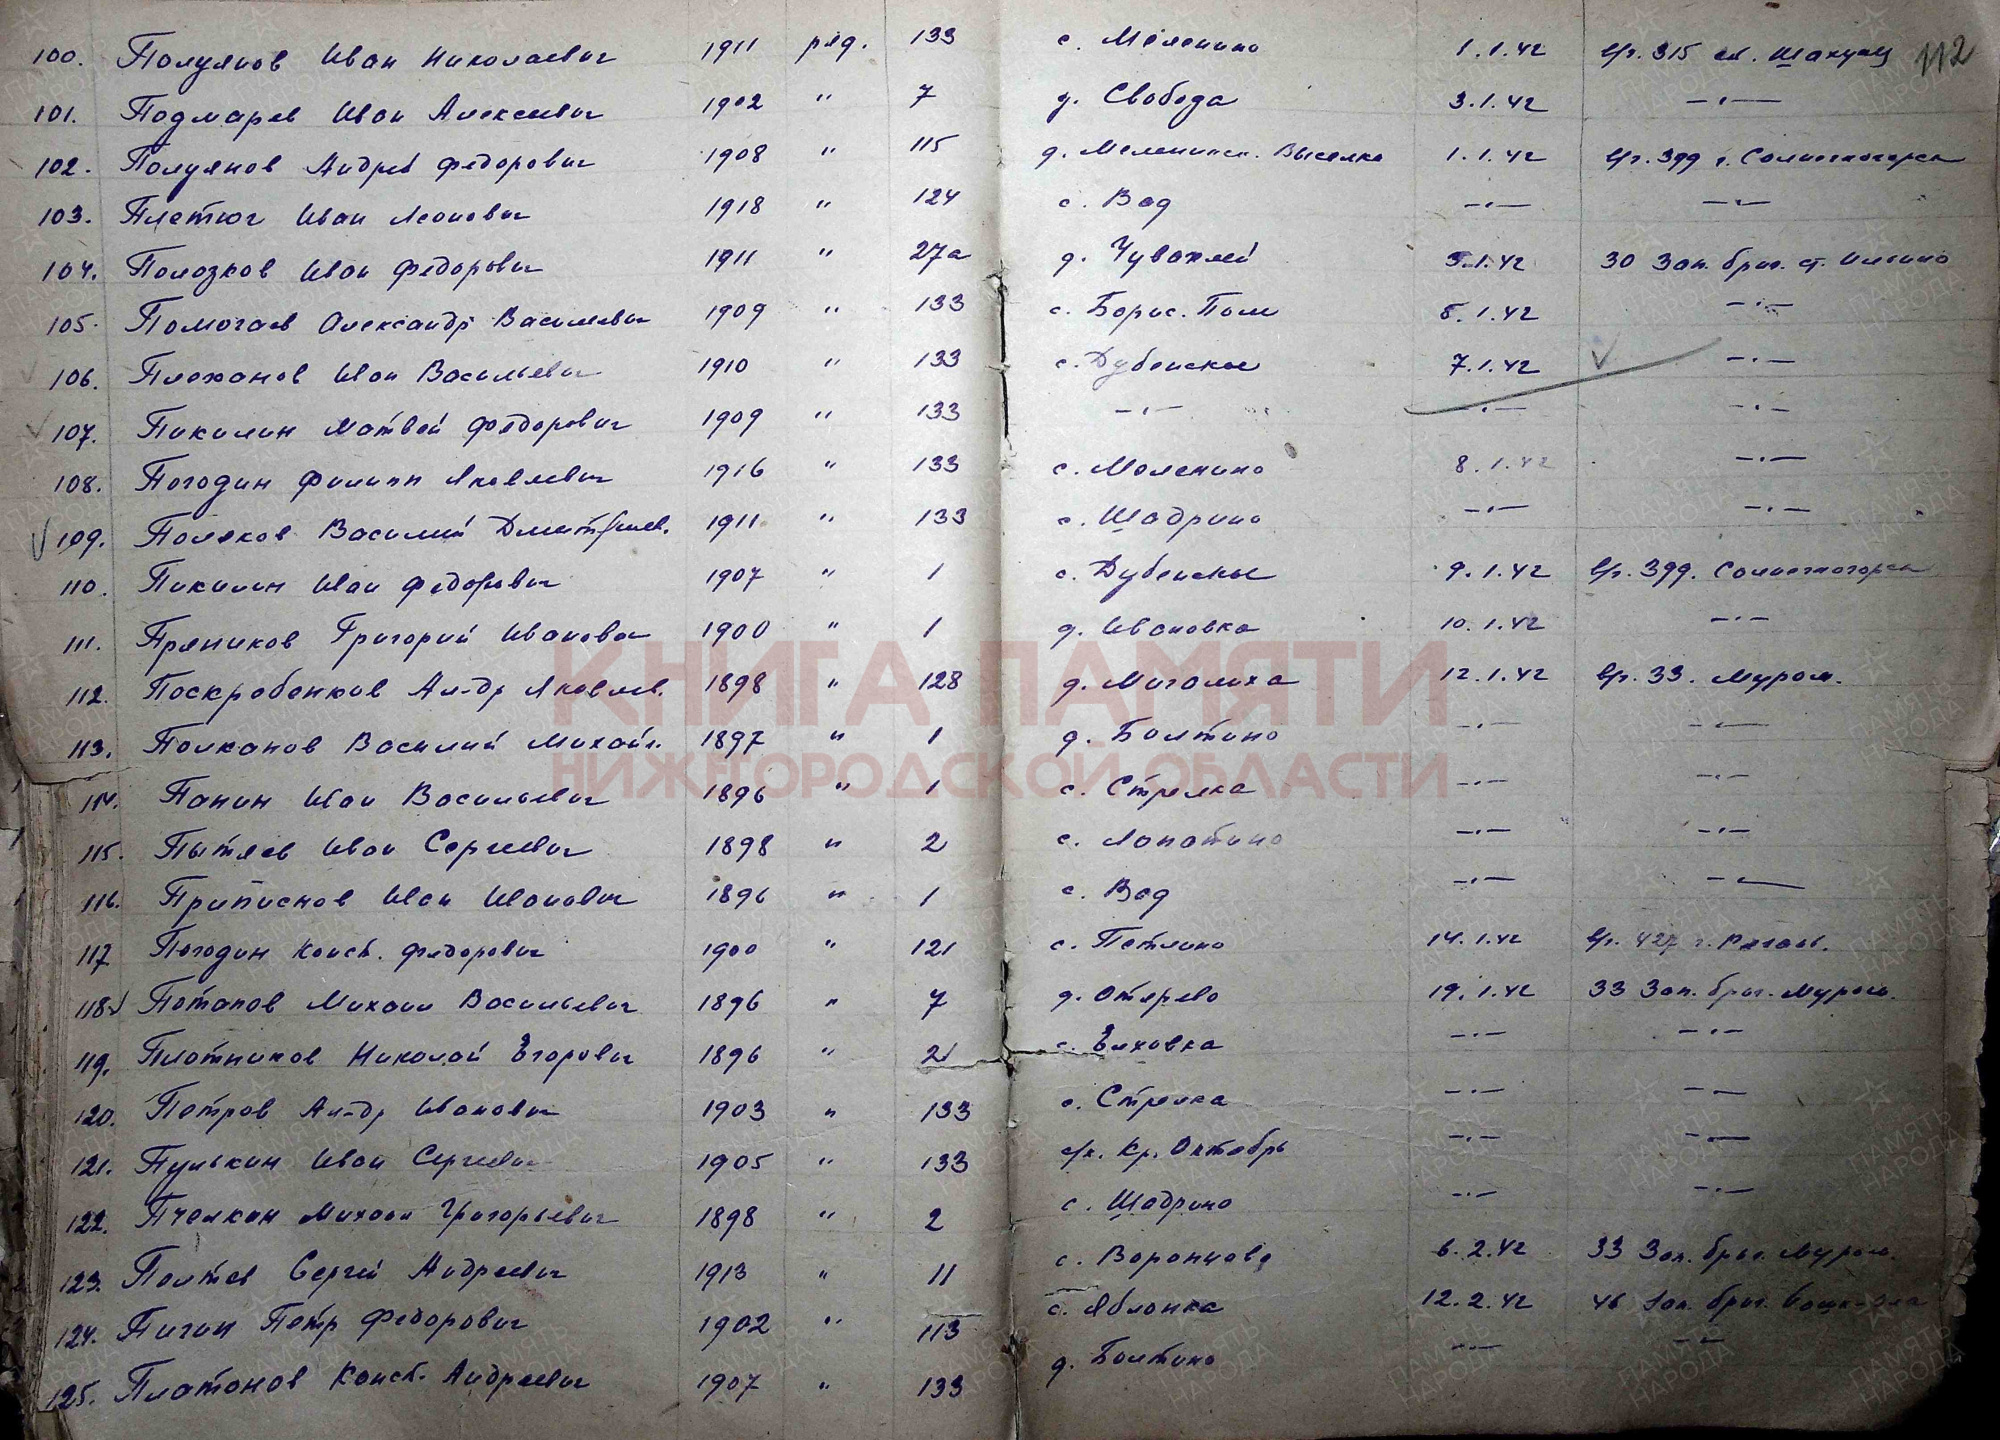 100. Полуянов Иван Николаевич 1911 ряд. 133 с. Меленино 1.1.42 в/ч. 315 ст. 112
101. Подмарев Иван Алексеевич 1902 " 7 д. Свобода 3.1.42 —"—
102. Полуянов Андрей Федорович 1908 " 115 д. Меленинск. Выселки 1.1.42 в/ч. 399 г. Солнечногорск
103. Плетюг Иван Леонович 1918 " 124 с. Вад —"— —"—
104. Полозков Иван Федорович 1911 " 27а д. Чуважлей 5.1.42 30 Зап. бриг. ст. Ильино
105. Помогаев Александр Васильевич 1909 " 133 с. Борис. Поле 8.1.42 —"—
106. Плеханов Иван Васильевич 1910 " 133 с. Дубенское 7.1.42 —"—
107. Пикилин Матвей Федорович 1909 " 133 —"— —"— —"—
108. Погодин Филипп Яковлевич 1916 " 133 с. Меленино 8.1.42 —"—
109. Поляков Василий Дмитриев. 1911 " 133 с. Шадрино —"— —"—
110. Пикилин Иван Федорович 1907 " 1 с. Дубенское 9.1.42 в/ч. 399. Солнечногорск
111. Пряников Григорий Иванович 1900 " 1 д. Ивановка 10.1.42 —"—
112. Поскребенков Ал-др Яковлев. 1898 " 128 д. Миголиха 12.1.42 в/ч. 33. Муром.
113. Полканов Василий Михайл. 1897 " 1 д. Болтино —"— —"—
114. Панин Иван Васильевич 1896 " 1 с. Стрелка —"— —"—
115. Пытяев Иван Сергеевич 1898 " 2 с. Лопатино —"— —"—
116. Приписнов Иван Иванович 1896 " 1 с. Вад —"— —"—
117 Погодин Конст. Федорович 1900 " 121 с. Петлино 14.1.42 в/ч. 427 г.
118. Потапов Михаил Васильевич 1896 " 7 д. Отярево 19.1.42 33 Зап. бриг. Муром.
119. Плотников Николай Егорович 1896 " 21 с. Елховка —"— —"—
120. Петров Ал-др Иванович 1903 " 133 с. Стрелка —"— —"—
121. Пулькин Иван Сергеевич 1905 " 133 с/х. Кр. Октябрь —"— —"—
122. Пчелкин Михаил Григорьевич 1898 " 2 с. Шадрино —"— —"—
123. Политев Сергей Андреевич 1913 " 11 с. Воронцово 6.2.42 33 Зап. бриг. Муром.
124. Пигин Петр Федорович 1902 " 113 с. Яблонка 12.2.42 46 Зап. бриг. Йошк-Ола
125. Платонов Конст. Андреевич 1907 " 133 д. Болтино —"— —"—
КНИГА ПАМЯТИ
НИЖЕГОРОДСКОЙ ОБЛАСТИ